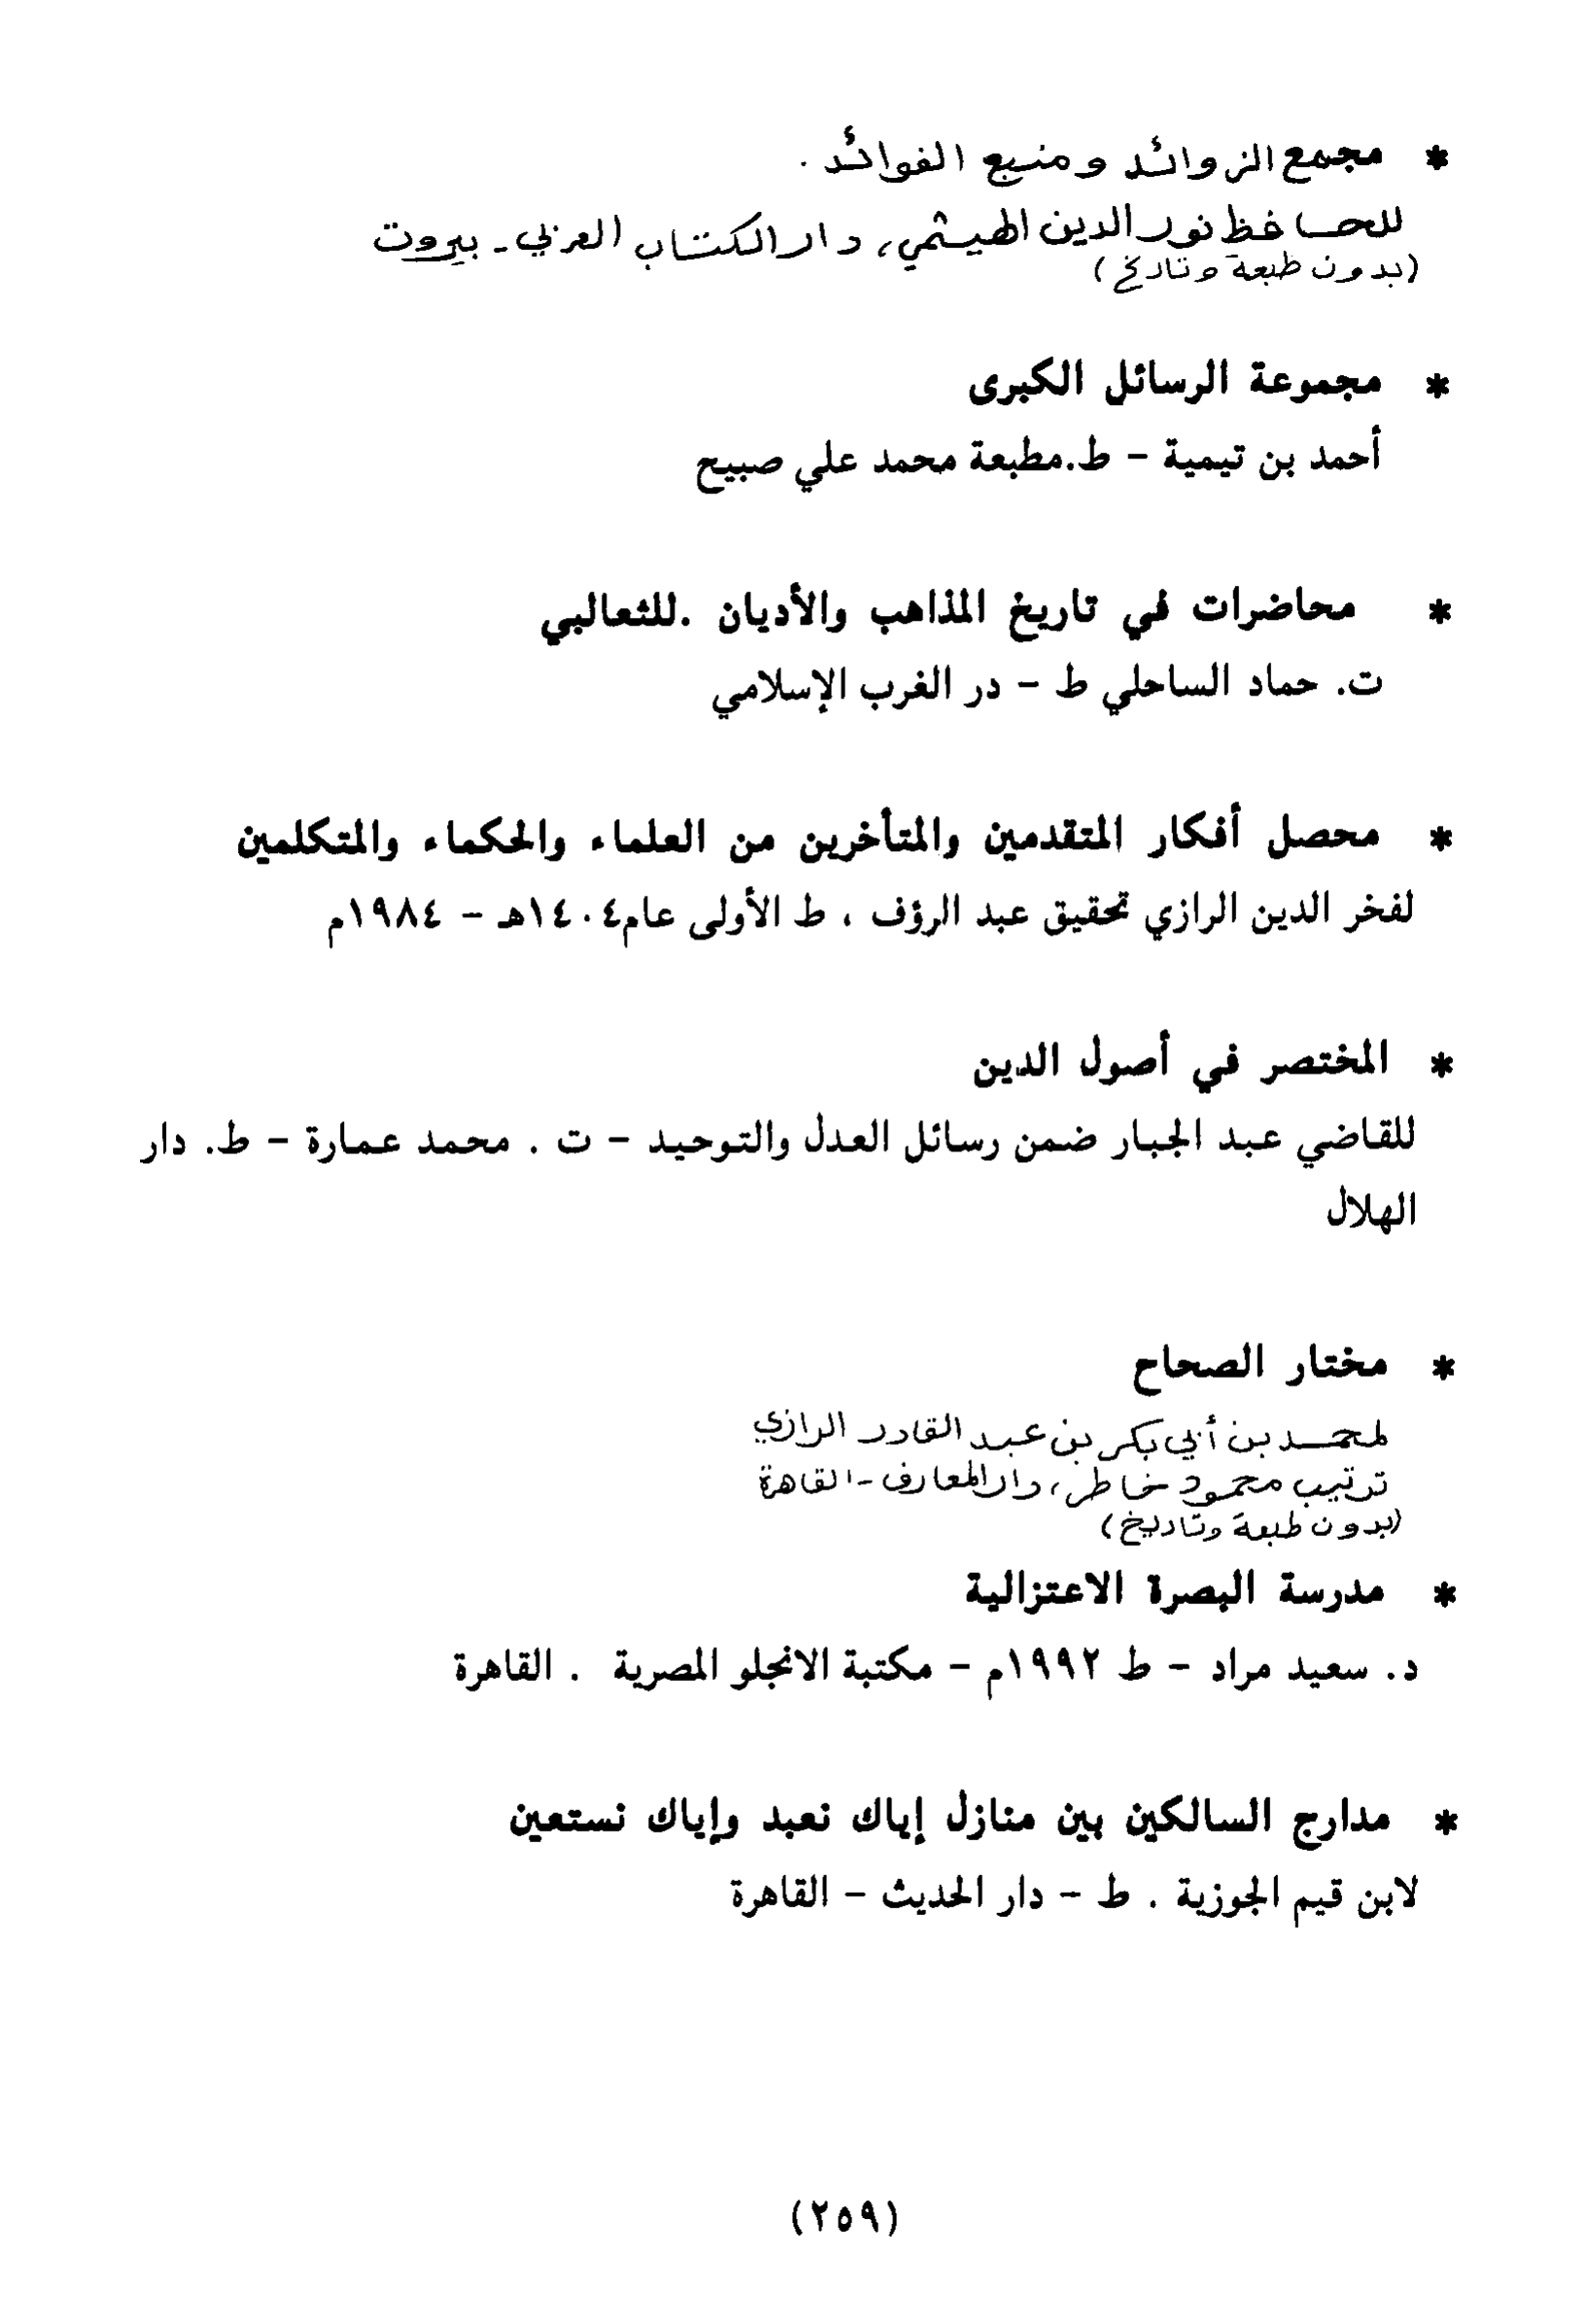 * مجمع الزوائد ومنبع الفوائد .
للحافظ نور الدين الهيثمي، دار الكتاب العربي - بيروت
(بدون طبعة وتاريخ)
* مجموعة الرسائل الكبرى
أحمد بن تيمية - ط.مطبعة محمد علي صبيح
* محاضرات في تاريخ المذاهب والأديان .للثعالبي
ت. حماد الساحلي ط - در الغرب الإسلامي
* محصل أفكار المتقدمين والمتأخرين من العلماء والحكماء والمتكلمين
لفخر الدين الرازي تحقيق عبد الرؤف ، ط الأولى عام١٤٠٤هـ - ١٩٨٤م
* المختصر في أصول الدين
للقاضي عبد الجبار ضمن رسائل العدل والتوحيد - ت . محمد عمارة - ط. دار
الهلال
* مختار الصحاح
لمحمد بن أبي بكر بن عبد القادر الرازي
ترتيب محمود خاطر، دار المعارف - القاهرة
(بدون طبعة وتاريخ)
* مدرسة البصرة الاعتزالية
د. سعيد مراد - ط ١٩٩٢م - مكتبة الانجلو المصرية . القاهرة
* مدارج السالكين بين منازل إياك نعبد وإياك نستعين
لابن قيم الجوزية . ط - دار الحديث - القاهرة
(٢٥٩)